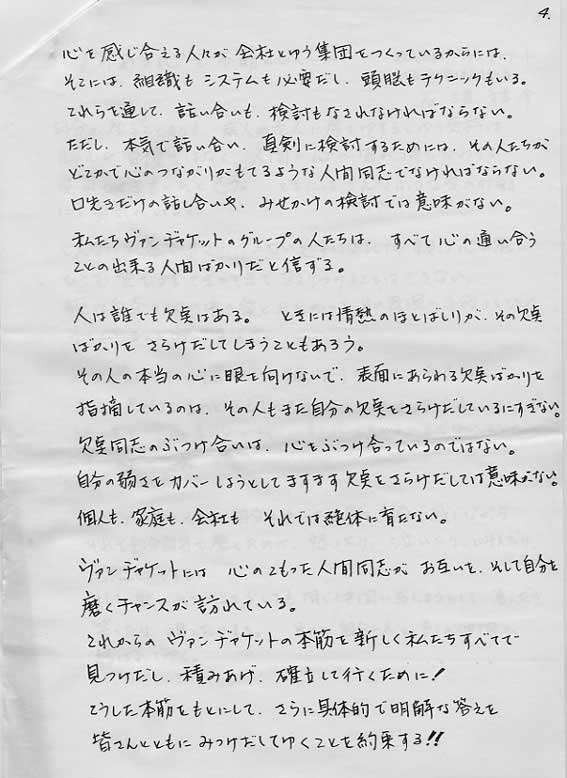 4.
心を感じ合える人々が 会社とゆう集団をつくっているからには、
そこには、組織も システムも必要だし、頭脳もテクニックもいる。
これらを通して、話い合いも、検討もなされなければならない。
ただし、本気で話い合い、真剣に検討するためには、その人たちが
どこかで心のつながりがもてるような人間同志でなければならない。
口先きだけの話し合いや、みせかけの検討では意味がない。
私たちヴァンヂャケットのグループの人たちは、すべて心の通い合う
ことの出来る人間ばかりだと信ずる。
人は誰でも欠点はある。 ときには情熱のほとばしりが、その欠点
ばかりを さらけだしてしまうこともあろう。
その人の本当の心に眼を向けないで、表面にあらわる欠点ばかりを
指摘しているのは、その人もまた自分の欠点をさらけだしているにすぎない。
欠点同志のぶつけ合いは、心をぶつけ合っているのではない。
自分の弱さをカバーしようとしてますます欠点をさらけだしては意味がない。
個人も、家庭も、会社も それでは絶体に育たない。
ヴァンヂャケットには 心のこもった人間同志が お互いを、そして自分を
磨くチャンスが訪れている。
これからの ヴァンヂャケットの本筋を新しく私たちすべてで
見つけだし、積みあげ、確立して行くために！
こうした本筋をもとにして、さらに具体的で明解な答えを
皆さんとともに みつけだしてゆくことを約束する!!